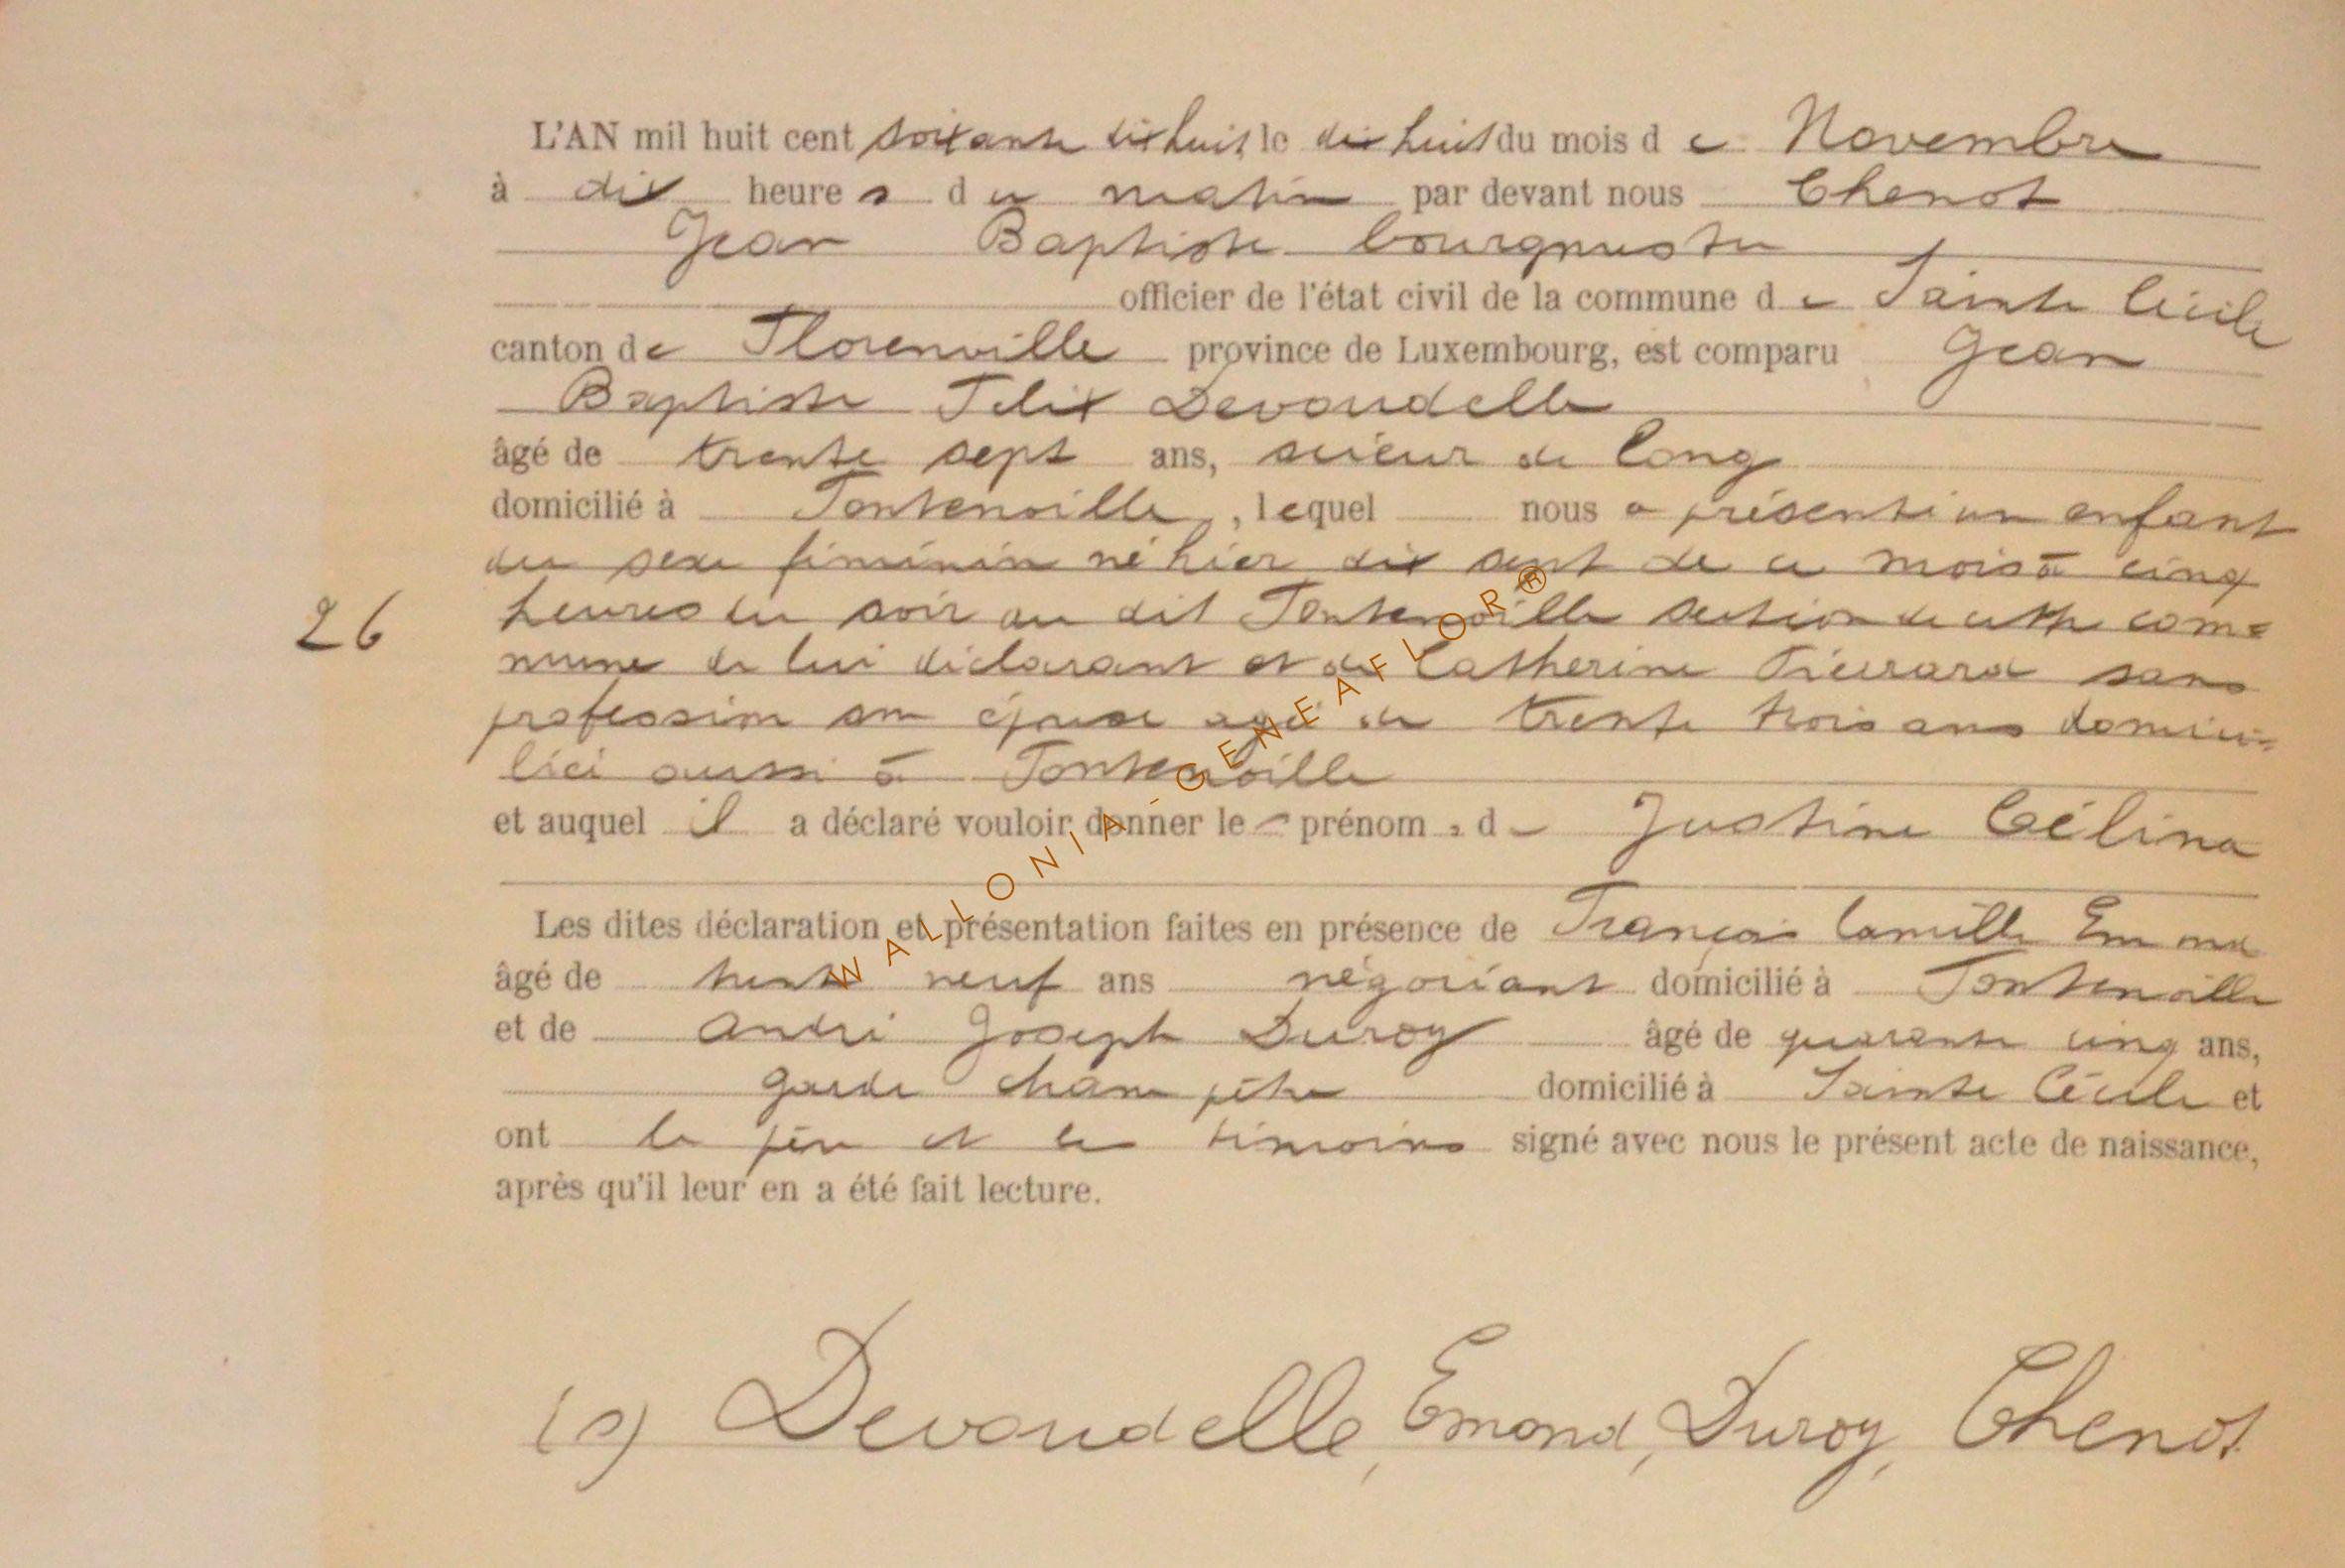 L'AN mil huit cent soixante dix huit le dix huit du mois de Novembre
à dix heures du matin par devant nous Chenot
Jean Baptiste bourgmestre
officier de l'état civil de la commune de Sainte Cécile
canton de Florenville province de Luxembourg, est comparu Jean
Baptiste Félix Devaudelle
âgé de trente sept ans, scieur de long
domicilié à Fontenoille, lequel nous a présenté un enfant
du sexe féminin né hier dix sept de ce mois à cinq
heures du soir au dit Fontenoille section de cette com=
26
mune de lui déclarant et de Catherine Pierrard sans
profession son épouse agée de trente trois ans domici=
liée aussi à Fontenoille
et auquel il a déclaré vouloir donner les prénoms de Justine Célina
Les dites déclaration et présentation faites en présence de François Camille Emond
âgé de trente neuf ans négociant domicilié à Fontenoille
et de André Joseph Duroy âgé de quarante cinq ans,
garde champêtre domicilié à Sainte Cécile et
ont le père et les témoins signé avec nous le présent acte de naissance,
après qu'il leur en a été fait lecture.
(s) Devaudelle, Emond, Duroy, Chenot
WALLONIA - GENEAFLOR®